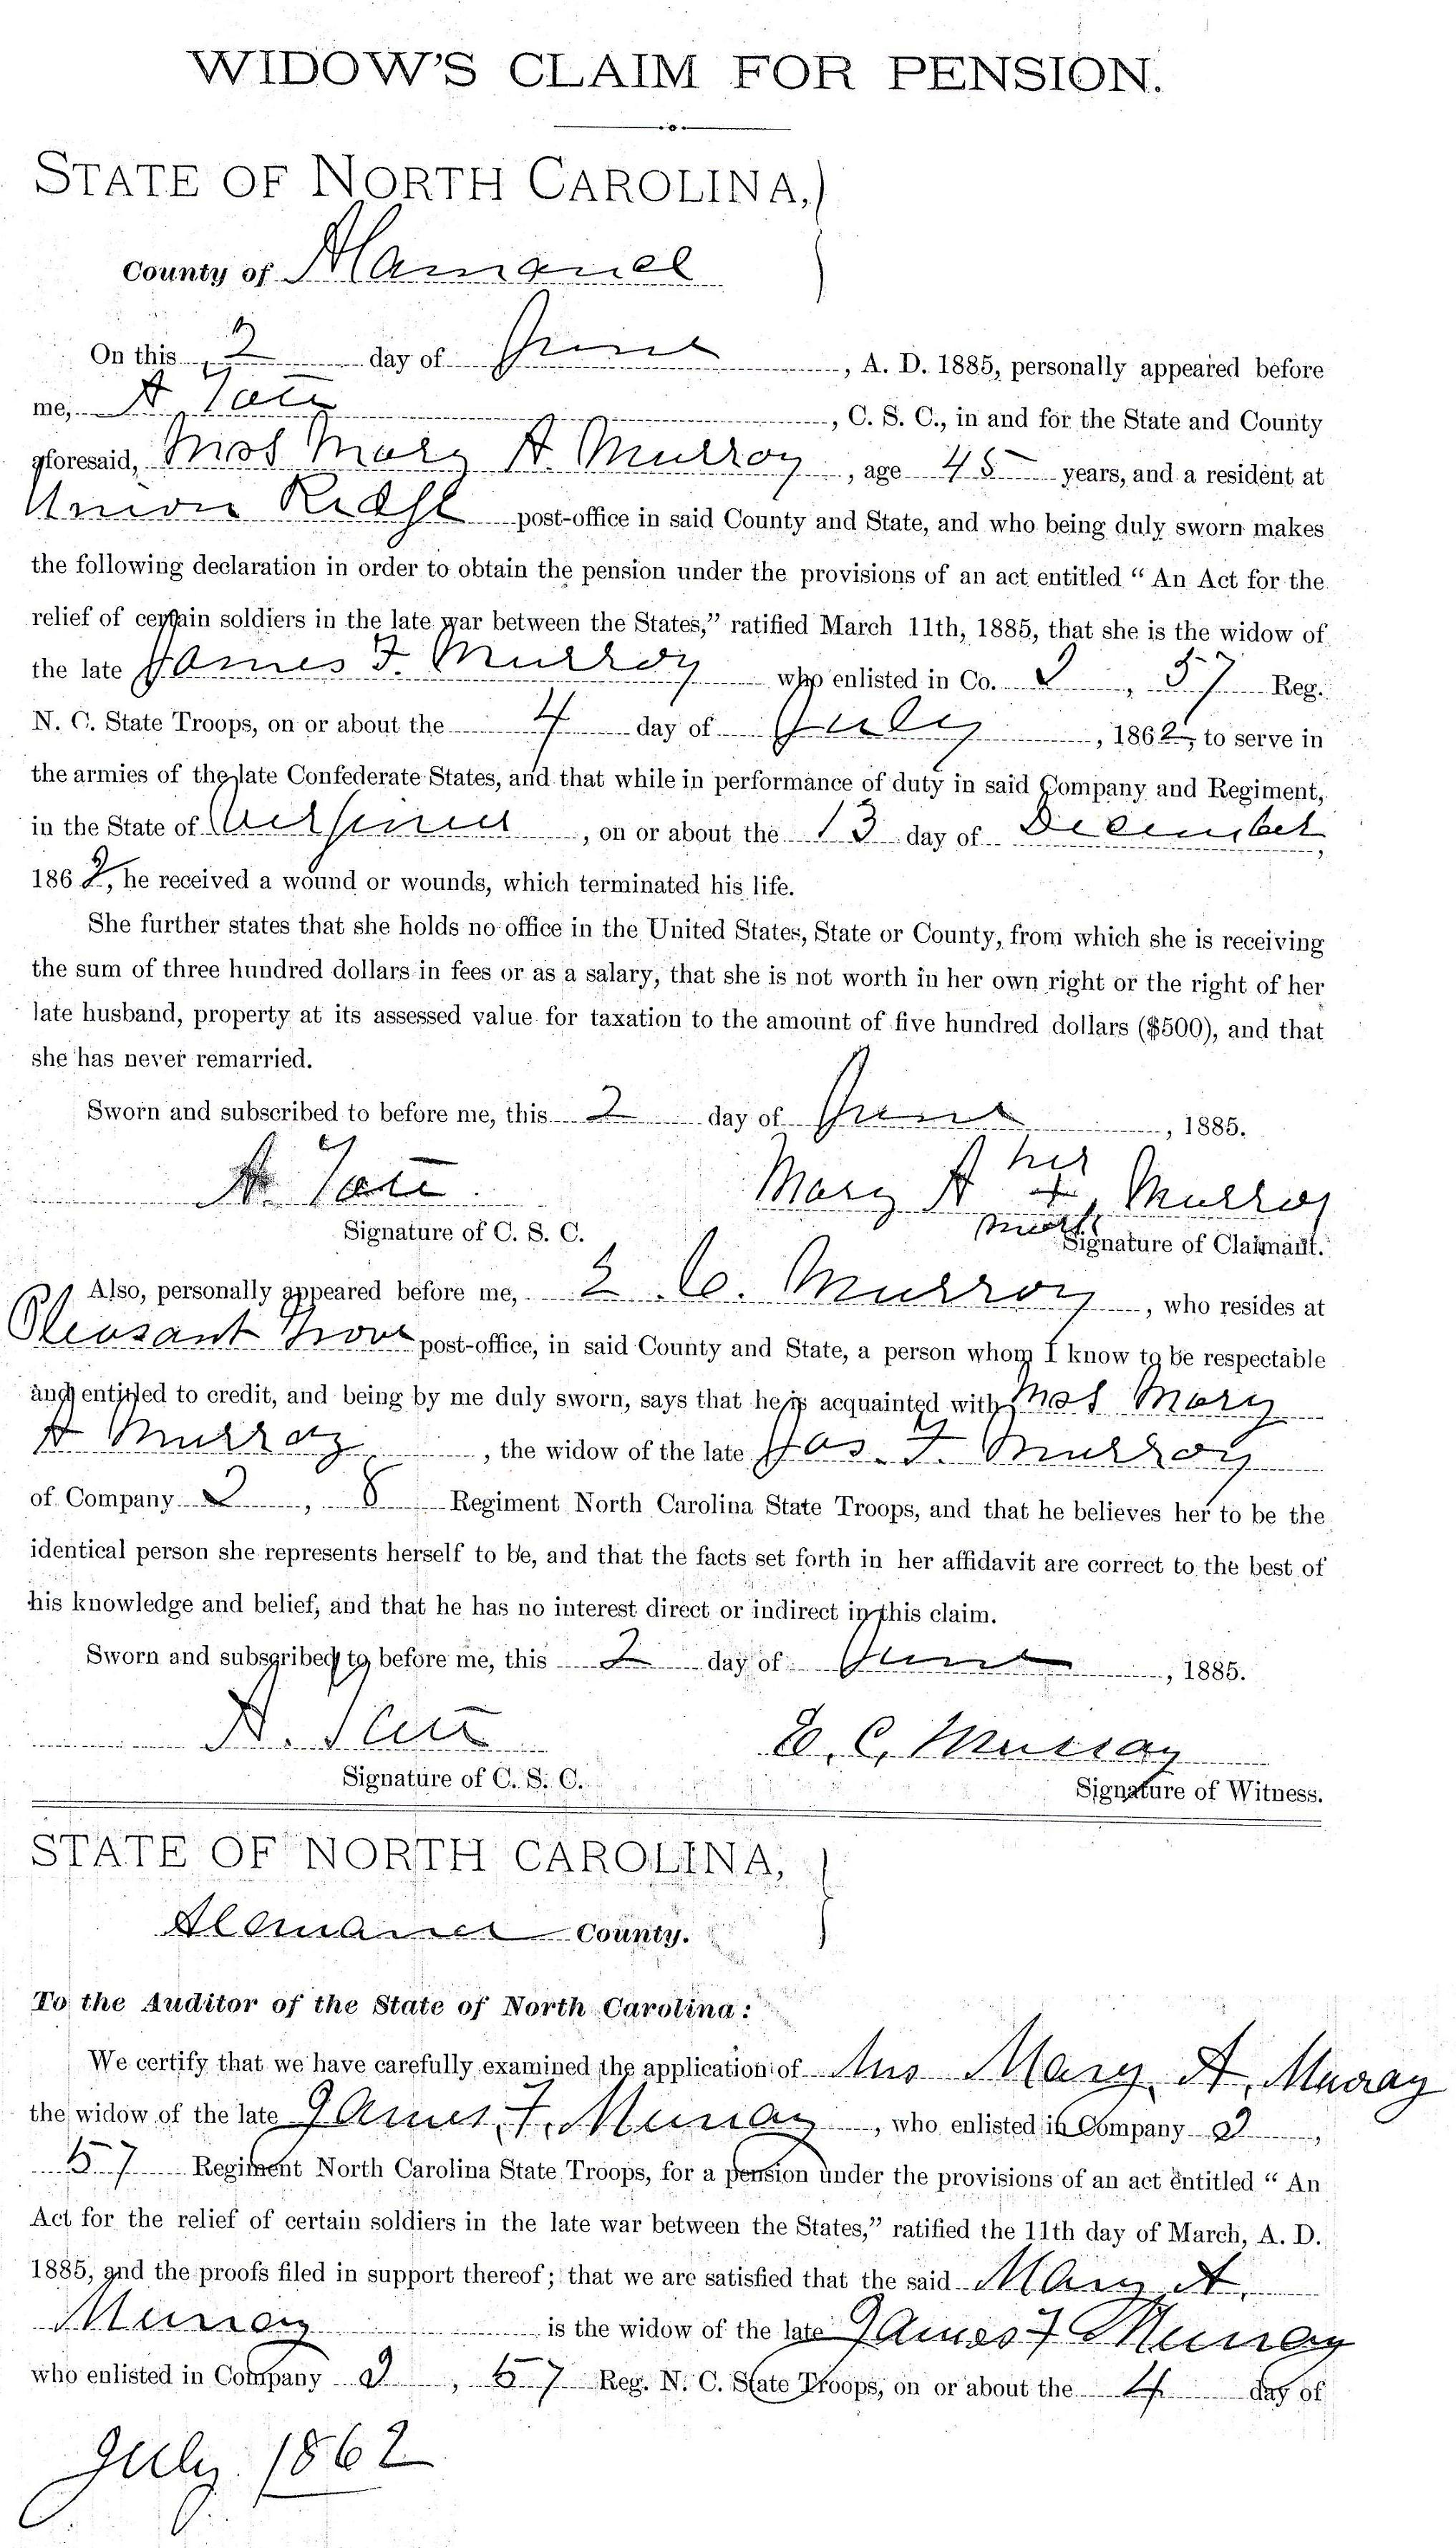 WIDOW'S CLAIM FOR PENSION.
STATE OF NORTH CAROLINA,
County of Alamance
On this 2 day of June, A. D. 1885, personally appeared before
me, A Tate, C. S. C., in and for the State and County
aforesaid, Mrs Mary A. Murray, age 45 years, and a resident at
Union Ridge post-office in said County and State, and who being duly sworn makes
the following declaration in order to obtain the pension under the provisions of an act entitled “An Act for the
relief of certain soldiers in the late war between the States,” ratified March 11th, 1885, that she is the widow of
the late James F. Murray who enlisted in Co. , 57 Reg.
N. C. State Troops, on or about the 4 day of July, 1862, to serve in
the armies of the late Confederate States, and that while in performance of duty in said Company and Regiment,
in the State of Virginia, on or about the 13 day of December,
1862, he received a wound or wounds, which terminated his life.
She further states that she holds no office in the United States, State or County, from which she is receiving
the sum of three hundred dollars in fees or as a salary, that she is not worth in her own right or the right of her
late husband, property at its assessed value for taxation to the amount of five hundred dollars ($500), and that
she has never remarried.
Sworn and subscribed to before me, this 2 day of June, 1885.
her
A. Tate. Mary A + Murray
mark
Signature of C. S. C. Signature of Claimant.
Also, personally appeared before me, E. C. Murray, who resides at
Pleasant Grove post-office, in said County and State, a person whom I know to be respectable
and entitled to credit, and being by me duly sworn, says that he is acquainted with Mrs Mary
A Murray, the widow of the late Jas. F. Murray
of Company , Regiment North Carolina State Troops, and that he believes her to be the
identical person she represents herself to be, and that the facts set forth in her affidavit are correct to the best of
his knowledge and belief, and that he has no interest direct or indirect in this claim.
Sworn and subscribed to before me, this 2 day of June, 1885.
A. Tate E. C. Murray
Signature of C. S. C. Signature of Witness.
STATE OF NORTH CAROLINA,
Alamance County.
To the Auditor of the State of North Carolina:
We certify that we have carefully examined the application of Mrs Mary A. Murray
the widow of the late James F. Murray, who enlisted in Company ,
57 Regiment North Carolina State Troops, for a pension under the provisions of an act entitled “An
Act for the relief of certain soldiers in the late war between the States,” ratified the 11th day of March, A. D.
1885, and the proofs filed in support thereof; that we are satisfied that the said Mary A.
Murray is the widow of the late James F Murray
who enlisted in Company , 57 Reg. N. C. State Troops, on or about the 4 day of
July 1862